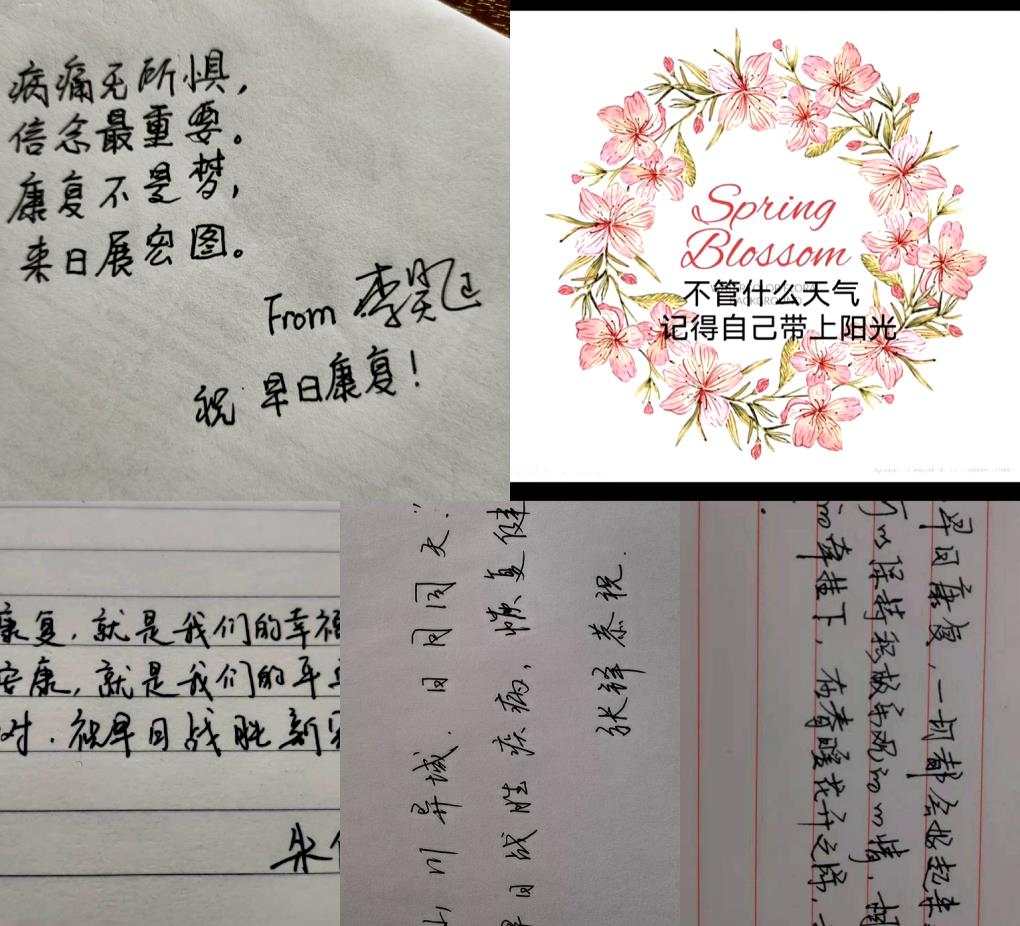 病痛无所惧,
信念最重要。
康复不是梦,
来日展宏图。
From 李昊
祝 早日康复!
Spring
Blossom
不管什么天气
记得自己带上阳光
康复,就是我们的幸福
安康,就是我们的平
对.祝早日战胜新
朱
山川异域.日月同天."
早日战胜疾病,恢复健
张祥 恭祝.
早日康复,一切都会好起来
保持积极乐观的心情,
的牵挂下,在春暖花开之际,